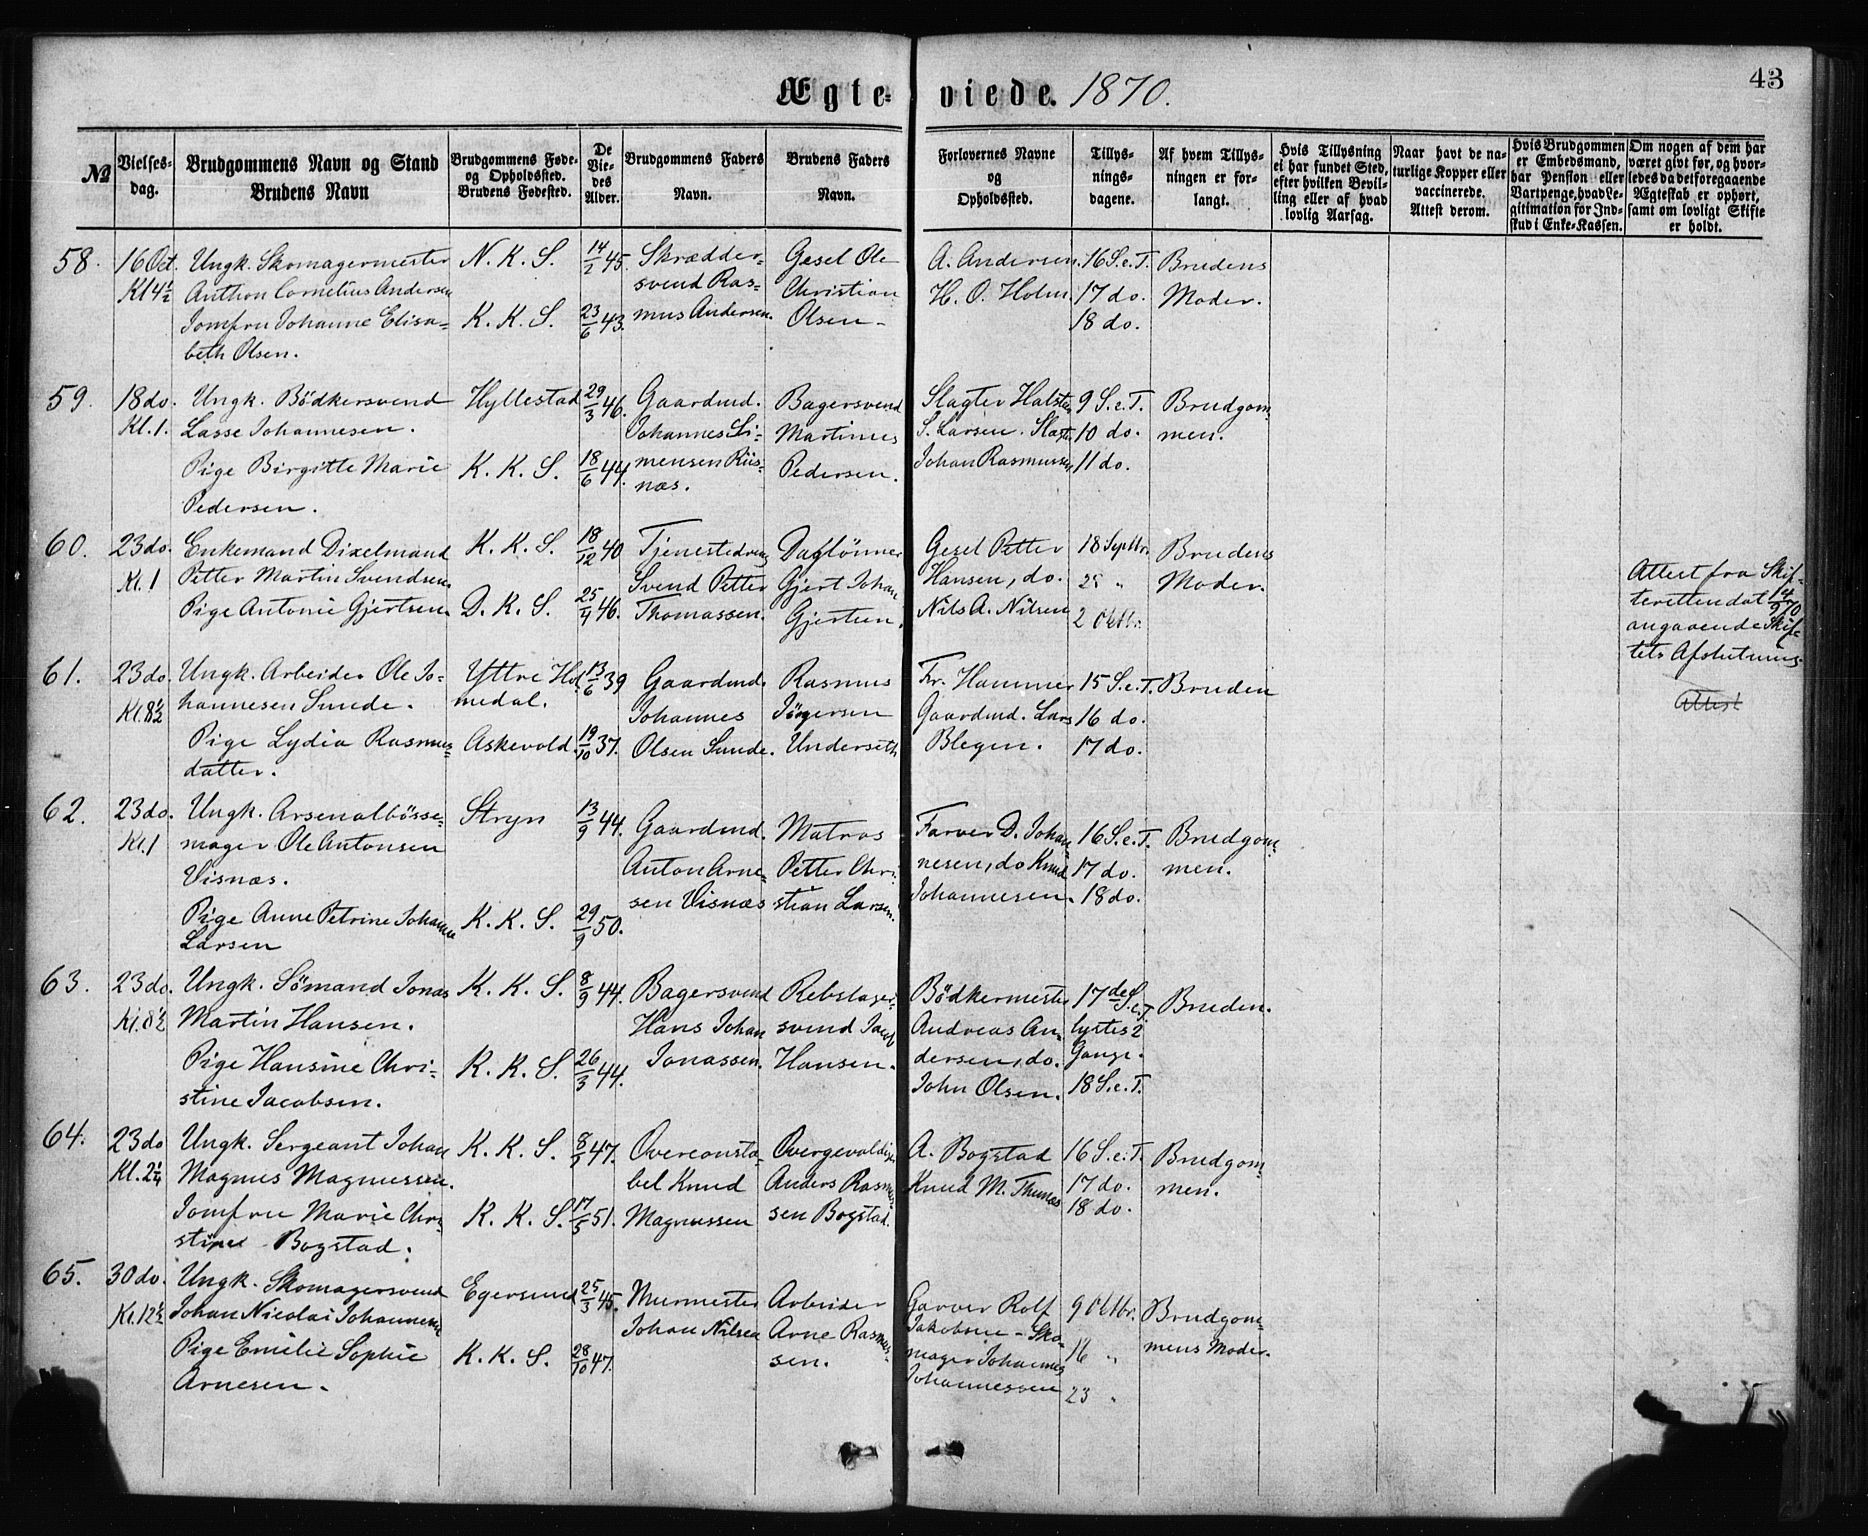 43
Ægte-viede. 1870.
№
Vielses-
dag.
Brudgommens Navn og Stand
Brudens Navn
Brudgommens Føde-
og Opholdssted.
Brudens Fødested.
De
Vie-
des
Alder.
Brudgommens Faders
Navn.
Brudens Faders
Navn.
Forlovernes Navne
og
Opholdssted.
Tillys-
nings-
dagene.
Af hvem Tillys-
ningen er for-
langt.
Hvis Tillysning
ei har fundet Sted,
efter hvilken Bevil-
ling eller af hvad
lovlig Aarsag.
Naar havt de na-
turlige Kopper eller
vaccinerede.
Attest derom.
Hvis Brudgommen
er Embedsmand,
har Pension eller
Vartpenge, hvad Le-
gitimation for Ind-
skud i Enke-Kassen.
Om nogen af dem har
været givt før, og hvor-
ledes da det foregaaende
Ægteskab er ophørt,
samt om lovligt Skifte
er holdt.
58.
16 Oct.
Kl 4½
Ungk. Skomagermester
Anthon Cornelius Andersen
Jomfru Johanne Elisa-
beth Olsen.
N. K. S.
K. K. S.
14/2 45.
23/6 43.
Skrædder-
svend Ras-
mus Andersen.
Gesel Ole
Christian
Olsen -
A. Andersen.
H. O. Holm.
16 S. e. T.
17 do.
18 do.
Brudens
Moder.
59.
18 do.
Kl. 1.
Ungk. Bödkersvend
Lasse Johannesen.
Pige Birgitte Marie
Pedersen.
Hyllestad
K. K. S.
29/3 46.
18/6 44.
Gaardmd.
Johannes Si-
mensen Riis-
næs.
Bagersvend
Martinus
Pedersen.
Slagter Halsten
S. Larsen. Slagt.
Johan Rasmussen
9 S. e. T.
10 do.
11 do.
Brudgom-
men.
60.
23 do.
Kl. 1
Enkemand Dixelmand
Petter Martin Svendsen
Pige Antonie Gjertsen.
K. K. S.
D. K. S.
18/12 40
25/4 46.
Tjenestedreng
Svend Petter
Thomassen.
Daglönner
Gjert Johan
Gjertsen.
Gesel Petter
Hansen, do.
Nils A. Nilsen
18 Septbr.
25 "
2 Oktbr.
Brudens
Moder.
Attest fra Skif-
teretten dat 14/9 70
angaaende Skif-
tets Afslutning.
Attest
61.
23 do.
Kl. 8½
Ungk. Arbeider Ole Jo-
hannesen Sunde.
Pige Lydia Rasmus-
datter.
Yttre Hol-
medal.
Askevold.
13/6 39
19/10 37.
Gaardmd.
Johannes
Olsen Sunde.
Rasmus
Jörgersen
Underseth
Fr. Hammer
Gaardmd. Lars
Blegen.
15 S. e. T.
16 do.
17 do.
Bruden
62.
23 do.
Kl. 1
Ungk. Arsenalbösse-
mager Ole Antonsen
Visnæs.
Pige Anne Petrine Johanne
Larsen
Stryn
K. K. S.
13/9 44.
29/9 50.
Gaardmd.
Anton Arne-
sen Visnæs
Matros
Petter Chri-
stian Larsen.
Farver D. Johan-
nesen, do Knud
Johannesen.
16 S. e. T.
17 do.
18 do.
Brudgom-
men.
63.
23 do.
Kl. 8½
Ungk. Sömand Jonas
Martin Hansen.
Pige Hansine Chri-
stine Jacobsen.
K. K. S.
K. K. S.
8/9 44.
26/3 44.
Bagersvend
Hans Johan
Jonassen.
Rebslager-
svend Jacob
Hansen.
Bödkermester
Andreas An-
dersen, do.
John Olsen.
17de S. e. T.
lystes 2
Gange.
18 S. e. T.
Bruden.
64.
23 do
Kl. 2¼
Ungk. Sergeant Johan
Magnus Magnussen.
Jomfru Marie Chri-
stine Bogstad.
K. K. S.
K. K. S.
47.
17/5 51.
Overconsta-
bel Knud
Magnussen
Overgevaldiger
Anders Rasmus-
sen Bogstad.
A. Bogstad
Knud M. Thunæs
16 S. e. T.
17 do.
18 do.
Brudgom-
men.
65.
30 do.
Kl. 12½
Ungk. Skomagersvend
Johan Nicolai Johannesen
Pige Emilie Sophie
Arnesen.
Egersund
K. K. S.
25/3 45.
28/10 47.
Murmester
Johan Nilsen
Arbeider
Arne Rasmus-
sen.
Garver Rolf
Jakobsen - Sko-
mager Johannes
Johannessen
9 Oktbr.
16 "
23 "
Brudgom-
mens Moder.